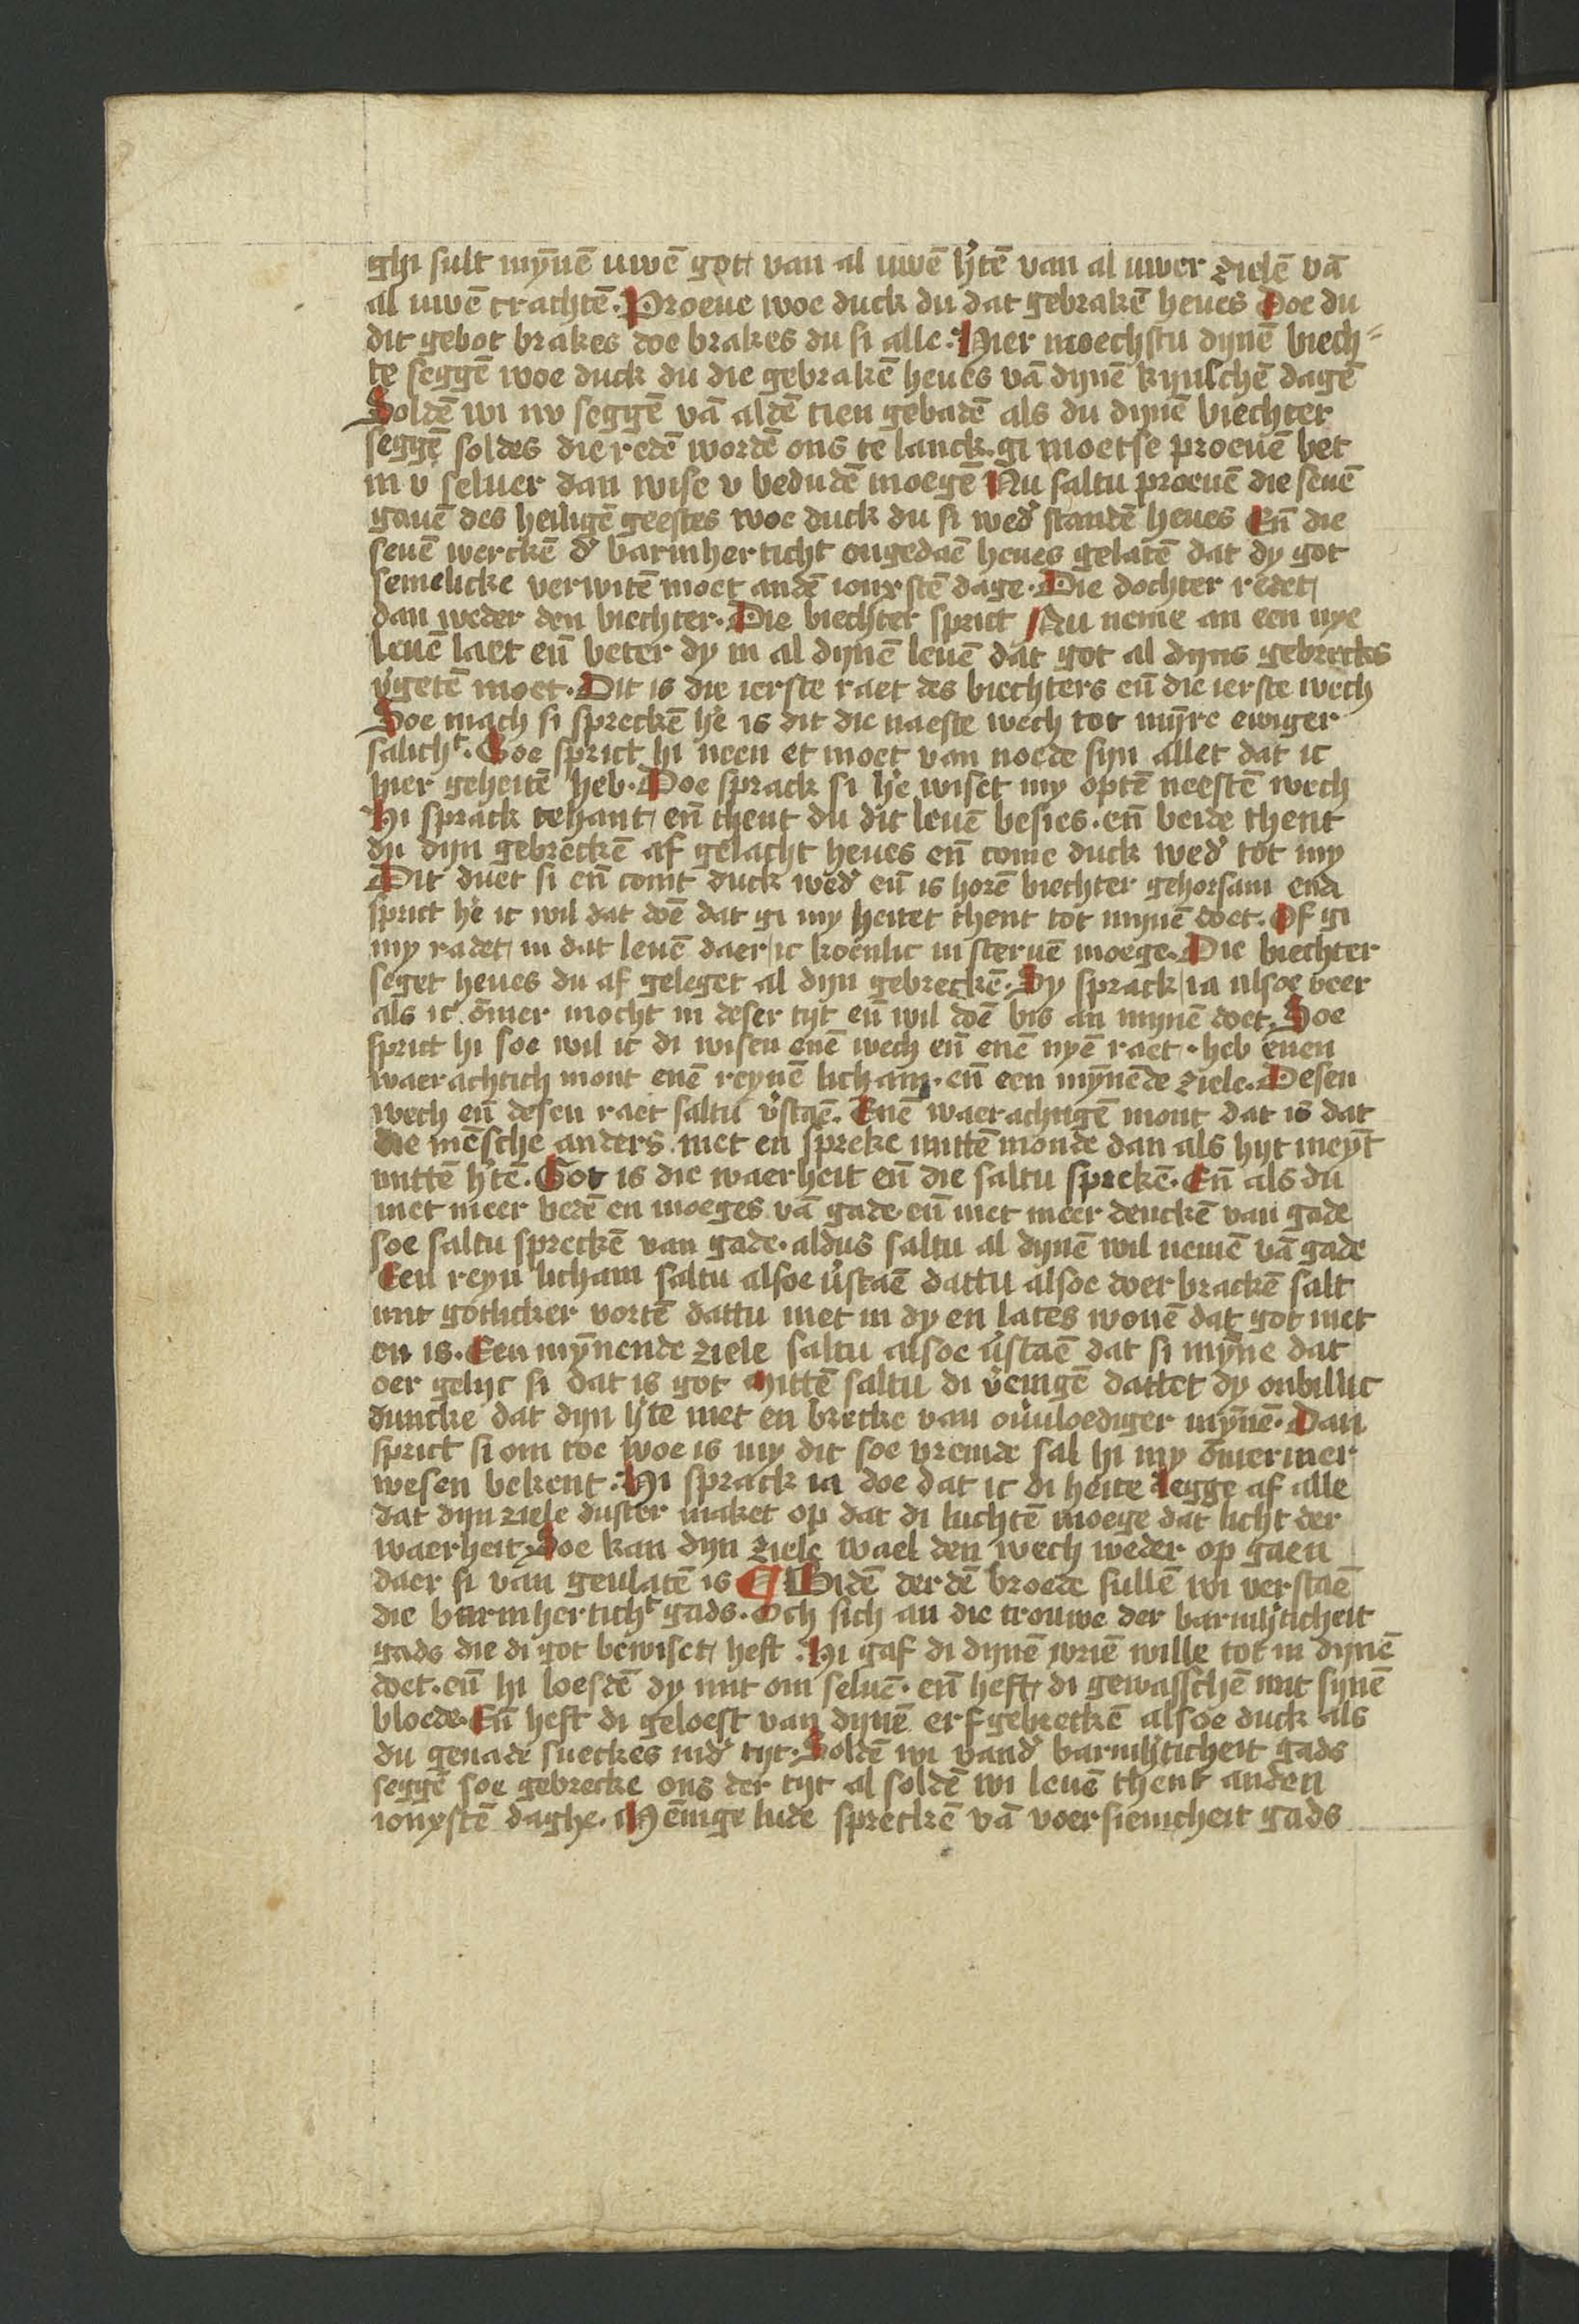 ghi sult mȳnē uwē got van al uwē h'tē van al uwer zielē vā
al uwē crachtē. Proeue woe duck du dat gebrakē heues Doe du
dit gebot brakes doe brakes du si alle. Hier moechstu dynē biech-
te seggē woe duck du die gebrakē heues vā dynē kynschē dagē
Soldē wi nv seggē vā aldē tien gebadē als du dynē biechter
seggē soldes die redē wordē ons te lanck. gi moetse proeuē bet
in v seluer dan wise v bedudē moegē Nu saltu proeuē die seuē
gauē des heiligē geestes woe duck du si wed' standē heues Eñ die
seuē werckē d' barmherticht ongedaē heues gelatē dat dy got
semelicke verwitē moet andē ionxstē dage. Die dochter redet
dan weder den biechter. Die biechter sprict Nu neme an een nye
leuē laet eñ beter dy in al dynē leuē dat got al dyns gebrecks
v'getē moet. Dit is die ierste raet des biechters eñ die ierste wech
Soe mach si spreckē h'e is dit die naeste wech tot mȳre ewiger
salicht. Soe sprict hi neen et moet van noede sijn allet dat ic
hier geheitē heb. Doe sprack si h'e wiset my optē neestē wech
Hi sprack tehant eñ thent du dit leuē besies. eñ beide thent
du dijn gebreckē af gelacht heues eñ come duck wed' tot my
Dit duet si eñ comt duck wed' eñ is horē biechter gehorsam ende
sprict h'e ic wil dat doē dat gi my heitet thent tot mynē doet. Of gi
my radet in dat leuē daer ic koenlic in steruē moege. Die biechter
seget heues du af geleget al dijn gebreckē. Sy sprack ia alsoe veer
als ic ōmer mocht in deser tijt eñ wil doē bis an mynē doet. Soe
sprict hi soe wil ic di wisen enē wech eñ enē nyē raet. heb enen
waerachtich mont enē reynē licham. eñ een mȳnēde ziele. Desen
wech eñ desen raet saltu v'staē. Enē waerachtigē mont dat is dat
die mēsche anders niet en spreke mittē monde dan als hijt meynt
mittē h'tē. Got is die waerheit eñ die saltu sprekē. Eñ als du
niet meer bedē en moeges vā gade. eñ niet meer denckē van gade
soe saltu spreckē van gade. aldus saltu al dynē wil nemē vā gade
Een reyn licham saltu alsoe v'staē dattu alsoe doer brackē salt
mit gotlicker vortē dattu niet in dy en lates wonē dat got niet
en is. Een mȳnende ziele saltu alsoe v'staē dat si mȳne dat
oer gelijc si dat is got Mittē saltu di v'enigē dattet dy onbillic
duncke dat dijn h'te niet en brecke van ou'uloediger mȳnē. Dan
sprict si om toe woe is my dit soe vremde sal hi my ōmermer
wesen bekent. Hi sprack ia doe dat ic di heite Legge af alle
dat dijn ziele duster maket op dat di luchtē moege dat licht der
waerheit. Soe kan dijn ziele wael den wech weder op gaen
daer si van geulatē is ¶ Bidē derdē broede sullē wi verstaē
die barmherticht gads. Och sich an die trouwe der barmh'ticheit
gads die di got bewiset heft. Hi gaf di dynē vriē wille tot in dynē
doet. eñ hi loesdē dy mit om seluē. eñ heft di gewasschē mit synē
bloede. Eñ heft di geloest van dynē erfgebreckē alsoe duck als
du genade sueckes ind' tijt. Soldē wi vand' barmh'ticheit gads
seggē soe gebrecke ons der tijt al soldē wi leuē thent anden
ionxstē daghe. Mēnige lude spreckē vā voersienicheit gads